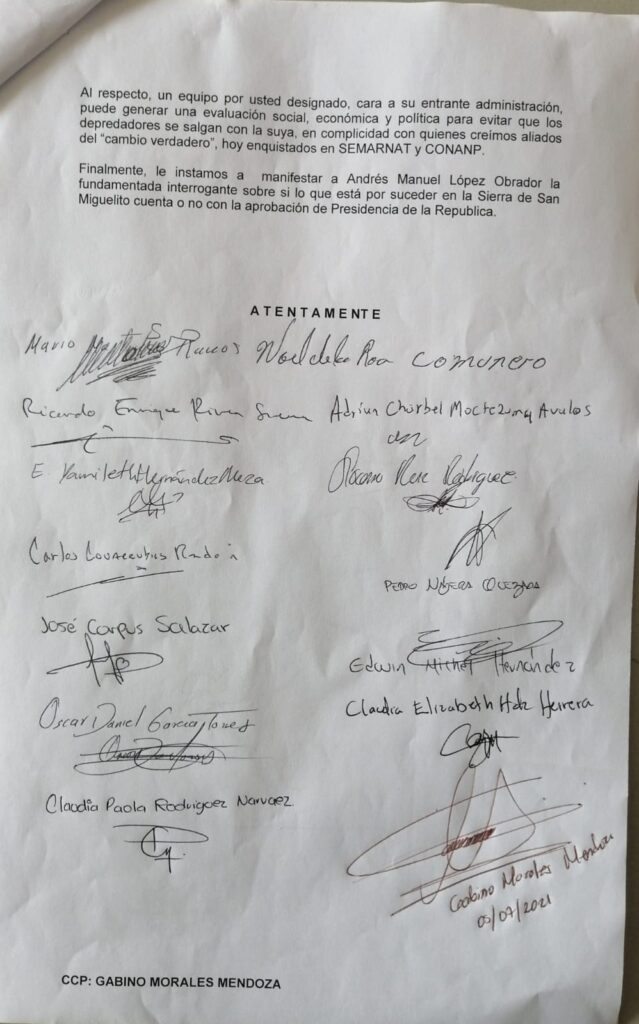 Al respecto, un equipo por usted designado, cara a su entrante administración,
puede generar una evaluación social, económica y política para evitar que los
depredadores se salgan con la suya, en complicidad con quienes creímos aliados
del "cambio verdadero", hoy enquistados en SEMARNAT y CONANP.
Finalmente, le instamos a manifestar a Andrés Manuel López Obrador la
fundamentada interrogante sobre si lo que está por suceder en la Sierra de San
Miguelito cuenta o no con la aprobación de Presidencia de la Republica.
ATENTAMENTE
Mario Ramos Noel de la Rosa comunero
Ricardo Enrique Rivera Adrian Charbel Moctezuma Avalos
E. Yamileth Hernández Meza Rene Rodriguez
Carlos
PEDRO NAJERA QUEZADA
José Corpus Salazar
Edwin Michel Hernández
Claudia Elizabeth Hdz Herrera
Oscar Daniel Garcia Torres
Claudia Paola Rodriguez Narvaez.
Gabino Morales Mendoza
09/07/2021
CCP: GABINO MORALES MENDOZA